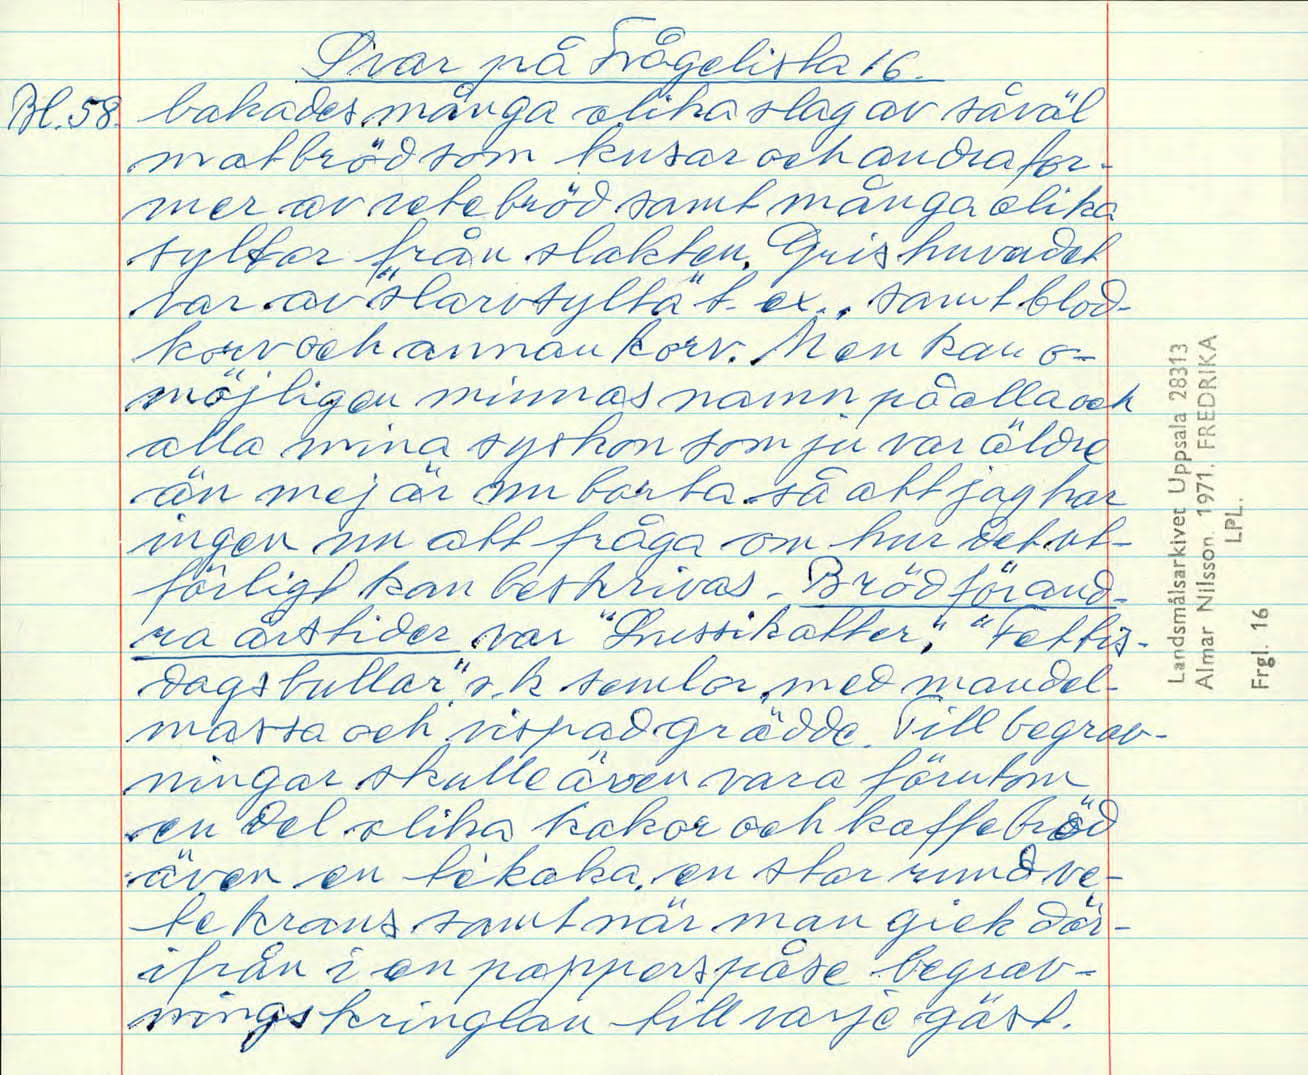 Svar på Frågelista 16.
Bl. 58. bakades många olika slag av såväl
matbröd som kusar och andra for-
mer av vetebröd samt många olika
syltor från slakten. Grishuvudet
var av "slarvsylta" t. ex., samt blod-
korv och annan korv. Men kan o-
möjligen minnas namn på alla och
alla mina syskon som ju var äldre
än mej är nu borta så att jag har
ingen nu att fråga om hur det ut-
förligt kan beskrivas. Bröd för and-
ra årstider var "Lussikatter," "Fettis-
dagsbullar" s.k. semlor, med mandel-
massa och vispad grädde. Till begrav-
ningar skulle även vara förutom
en del olika kakor och kaffebröd
även en tékaka, en stor rund ve-
tekrans samt när man gick där-
ifrån i en papperspåse begrav-
ningskringlan till varje gäst.
Landsmålsarkivet Uppsala 28313
Almar Nilsson. 1971. FREDRIKA
LPL.
Frgl. 16